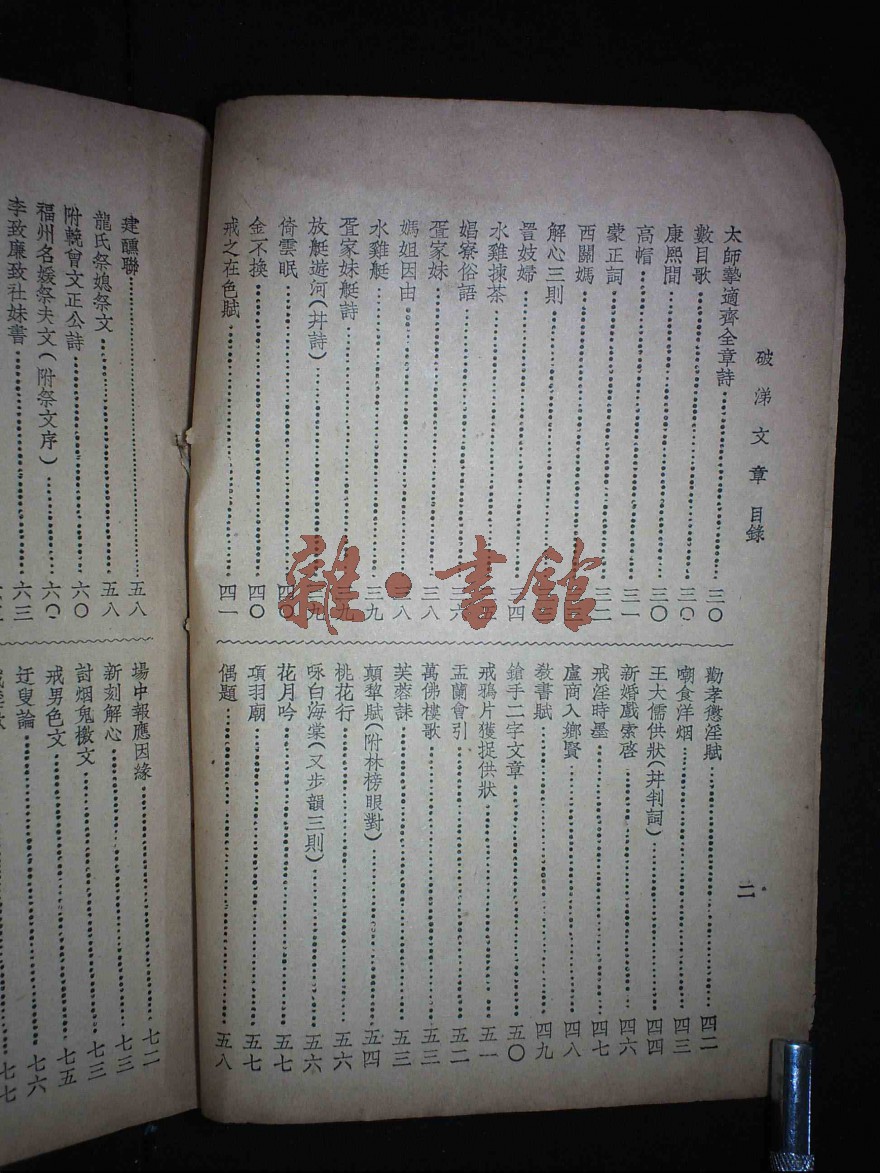 破涕文章目錄
二
太師摯適齊全章詩 三〇
數目歌 三〇
康熙間 三〇
高帽 三一
蒙正詞 三二
西關媽
解心三則
詈妓婦 三四
水雞揀茶
娼寮俗語 三六
疍家妹 三八
媽姐因由 三八
水雞艇 三九
疍家妹艇詩 三九
放艇遊河(幷詩) 三九
倚雲眠 四〇
金不換 四〇
戒之在色賦 四一
勸孝懲淫賦 四二
嘲食洋烟 四三
王大儒供狀(幷判詞) 四四
新婚戲索啓 四六
戒淫時墨 四七
盧商入鄉賢 四八
敎書賦 四九
鎗手二字文章 五〇
戒鴉片獲捉供狀 五一
盂蘭會引 五二
萬佛樓歌 五三
芙蓉誄 五三
顛犂賦(附林榜眼對) 五四
桃花行 五六
咏白海棠(又步韻三則) 五六
花月吟 五七
項羽廟 五七
偶題 五八
建醮聯 五八
龍氏祭媳祭文 五八
附輓曾文正公詩 六〇
福州名媛祭夫文(附祭文序) 六〇
李致廉致社妹書 六三
場中報應因緣 七二
新刻解心 七三
討烟鬼檄文 七三
戒男色文 七五
迂叟論 七六
七七
雜·書館